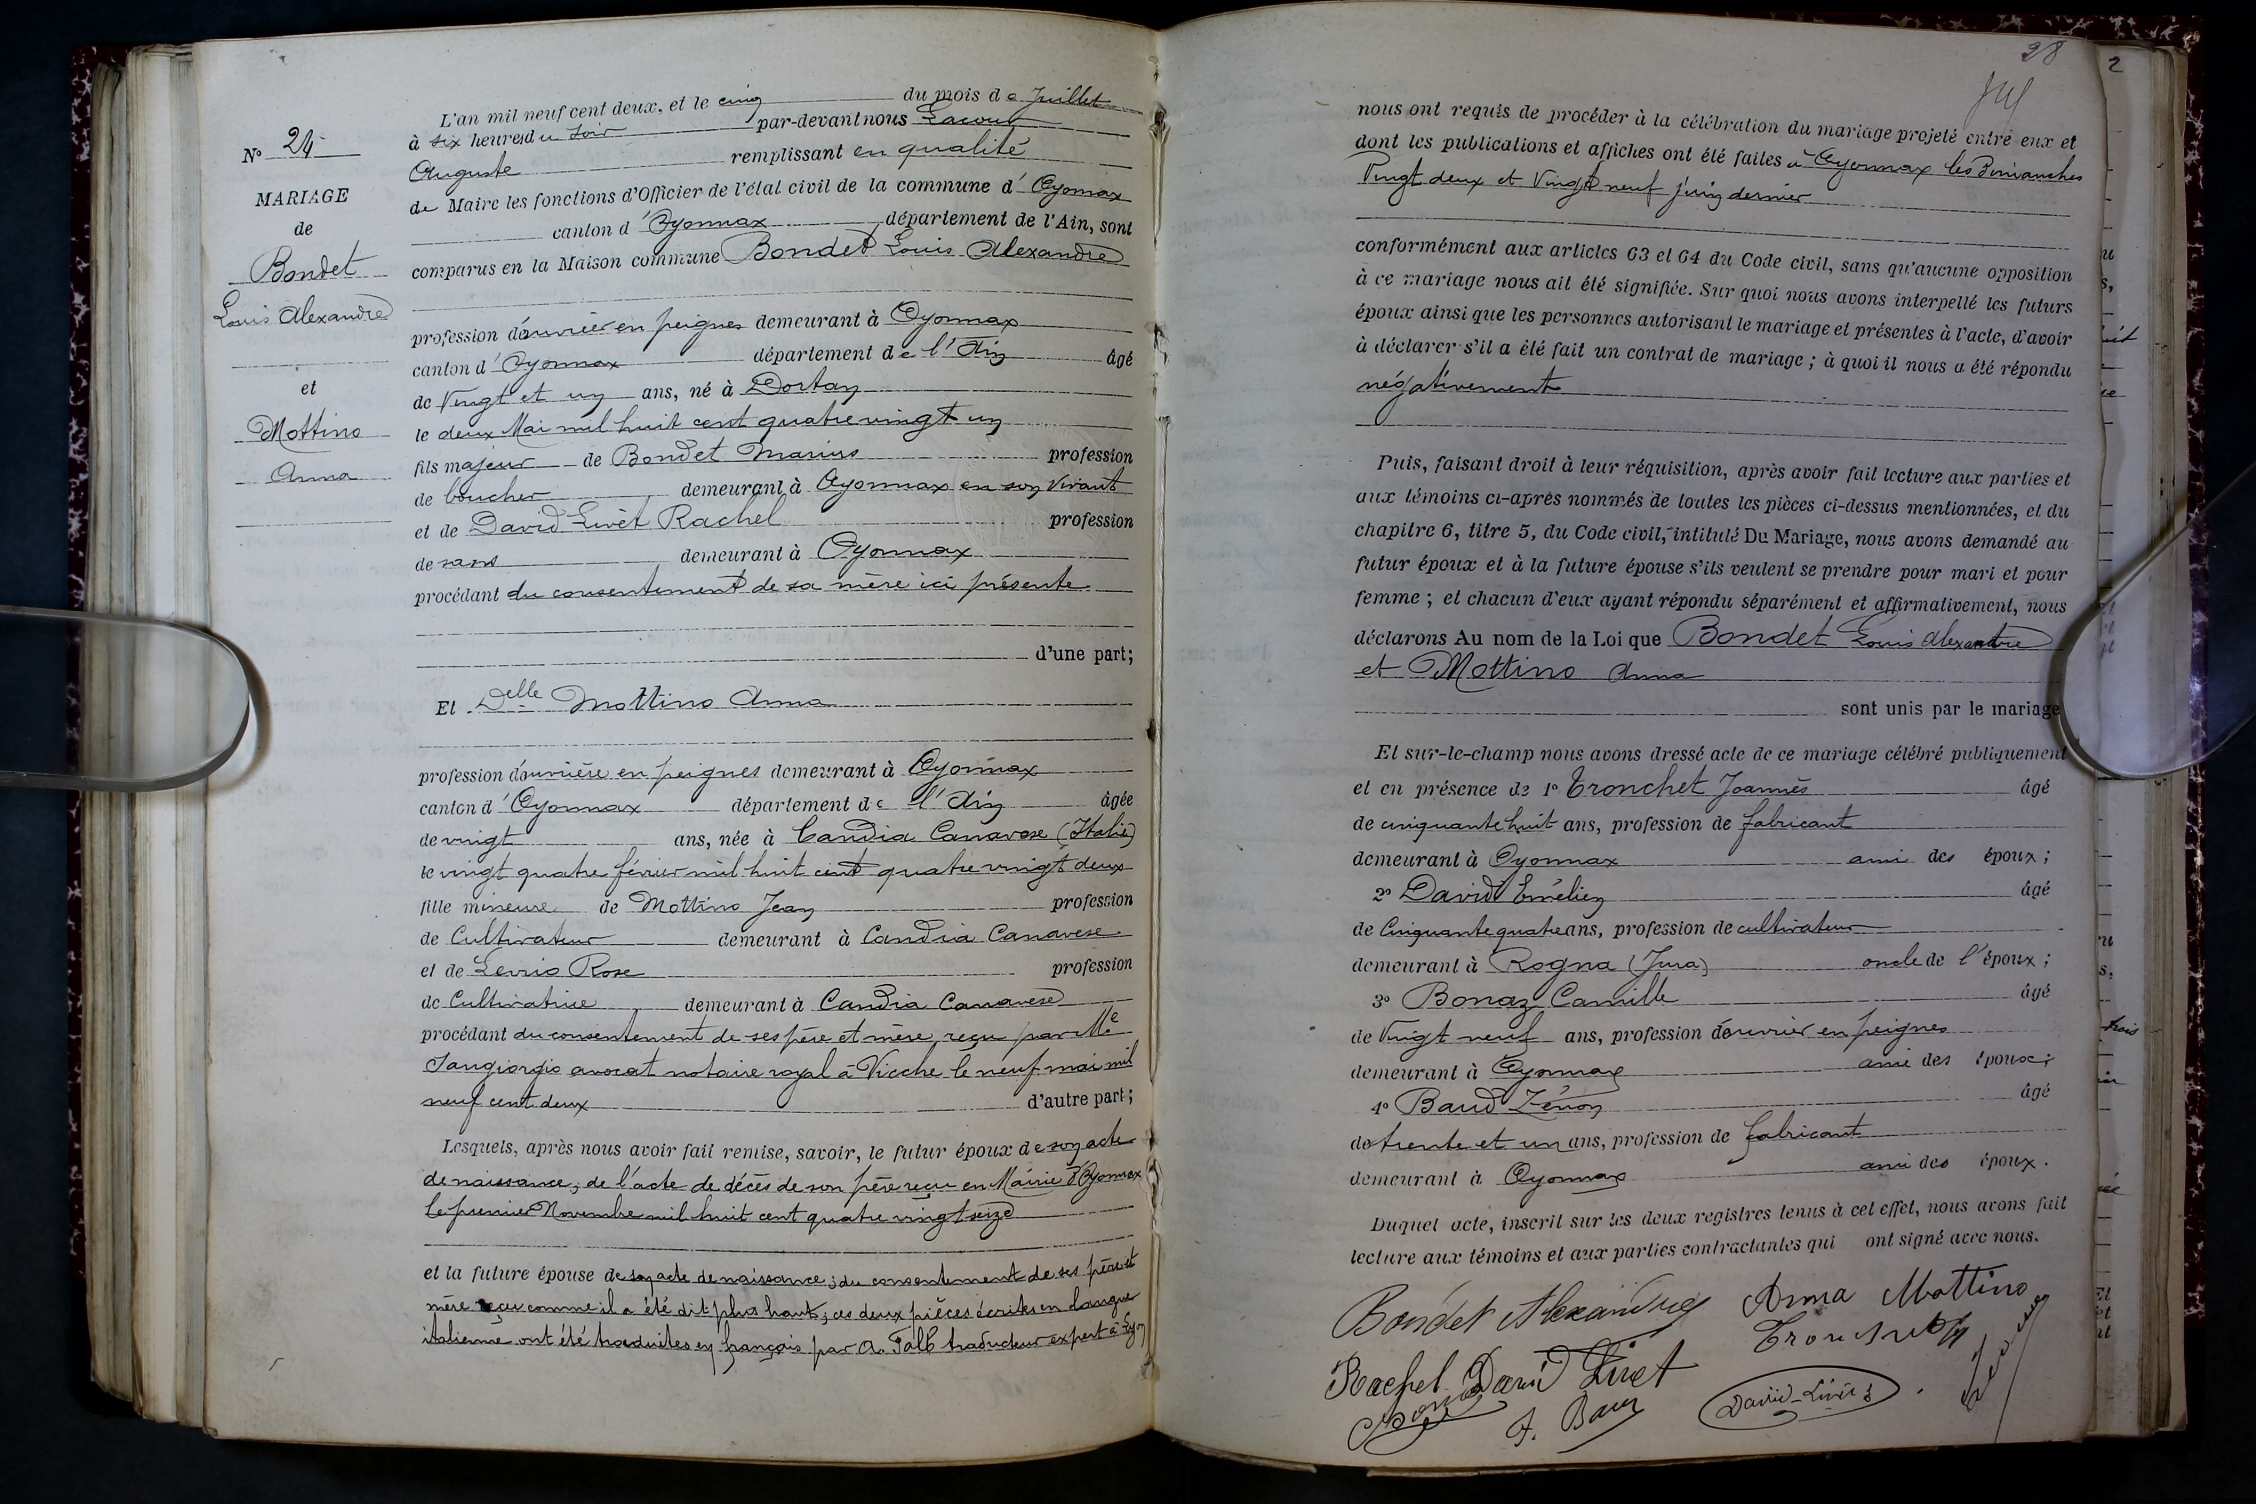 N° 24
MARIAGE
de
Bondet
Louis Alexandre
et
Mottino
Anna
L'an mil neuf cent deux, et le cinq du mois de Juillet
à six heures du soir par-devant nous Lacour
Auguste remplissant en qualité
de Maire les fonctions d'Officier de l'état civil de la commune d' Oyonnax
canton d' Oyonnax département de l'Ain, sont
comparus en la Maison commune Bondet Louis Alexandre
profession d'ouvrier en peignes demeurant à Oyonnax
canton d' Oyonnax département de l'Ain âgé
de Vingt et un ans, né à Dortan
le deux Mai mil huit cent quatre vingt un
fils majeur de Bondet Marius profession
de boucher demeurant à Oyonnax en son vivant
et de David Livet Rachel profession
de sans demeurant à Oyonnax
procédant du consentement de sa mère ici présente
d'une part;
Et Delle Mottino Anna
profession d'ouvrière en peignes demeurant à Oyonnax
canton d' Oyonnax département de l'Ain âgée
de vingt ans, née à Candia Canavese (Italie)
le vingt quatre février mil huit cent quatre vingt deux
fille mineure de Mottino Jean profession
de Cultivateur demeurant à Candia Canavese
et de Levrio Rose profession
de Cultivatrice demeurant à Candia Canavese
procédant du consentement de ses père et mère, reçu par Me
Sangiorgio avocat notaire royal à Vicche le neuf mai mil
neuf cent deux d'autre part;
Lesquels, après nous avoir fait remise, savoir, le futur époux de son acte
de naissance, de l'acte de décès de son père reçu en Mairie d'Oyonnax
le premier Novembre mil huit cent quatre vingt seize
et la future épouse de son acte de naissance; du consentement de ses père et
mère reçu comme il a été dit plus haut; ces deux pièces écrites en langue
italienne ont été traduites en français par A. Falb traducteur expert à Lyon
28
nous ont requis de procéder à la célébration du mariage projeté entre eux et
dont les publications et affiches ont été faites à Oyonnax les Dimanches
Vingt deux et Vingt neuf juin dernier
conformément aux articles 63 et 64 du Code civil, sans qu'aucune opposition
à ce mariage nous ait été signifiée. Sur quoi nous avons interpellé les futurs
époux ainsi que les personnes autorisant le mariage et présentes à l'acte, d'avoir
à déclarer s'il a été fait un contrat de mariage; à quoi il nous a été répondu
négativement
Puis, faisant droit à leur réquisition, après avoir fait lecture aux parties et
aux témoins ci-après nommés de toutes les pièces ci-dessus mentionnées, et du
chapitre 6, titre 5, du Code civil, intitulé Du Mariage, nous avons demandé au
futur époux et à la future épouse s'ils veulent se prendre pour mari et pour
femme; et chacun d'eux ayant répondu séparément et affirmativement, nous
déclarons Au nom de la Loi que Bondet Louis Alexandre
et Mottino Anna
sont unis par le mariage
Et sur-le-champ nous avons dressé acte de ce mariage célébré publiquement
et en présence de 1° Tronchet Joannès âgé
de cinquante huit ans, profession de fabricant
demeurant à Oyonnax ami des époux;
2° David Emélien âgé
de Cinquante quatre ans, profession de cultivateur
demeurant à Rogna (Jura) oncle de l'époux;
3° Bonaz Camille âgé
de Vingt neuf ans, profession d'ouvrier en peignes
demeurant à Oyonnax ami des époux;
4° Baud Zénon âgé
de trente et un ans, profession de fabricant
demeurant à Oyonnax ami des époux.
Duquel acte, inscrit sur les deux registres tenus à cet effet, nous avons fait
lecture aux témoins et aux parties contractantes qui ont signé avec nous.
Bondet Alexandre Anna Mottino
Tronchet
Rachel David Livet
Bonaz
David-Livet
2